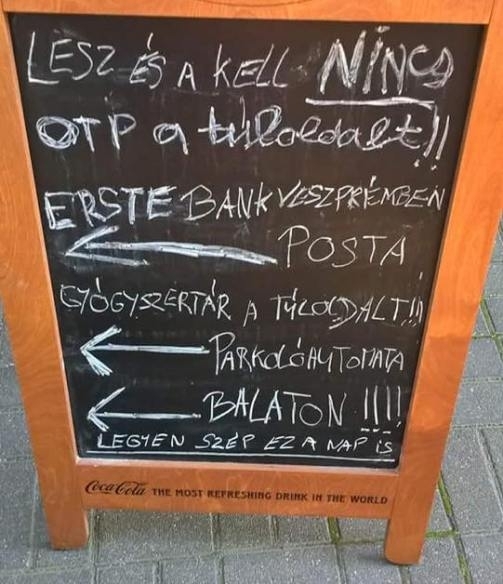 LESZ ÉS A KELL NINCS
OTP a túloldalt!!
ERSTE BANK VESZPRÉMBEN
POSTA
GYÓGYSZERTÁR A TÚLOLDALT!!!
PARKOLÓAUTOMATA
BALATON !!!!
LEGYEN SZÉP EZ A NAP is
Coca-Cola THE MOST REFRESHING DRINK IN THE WORLD